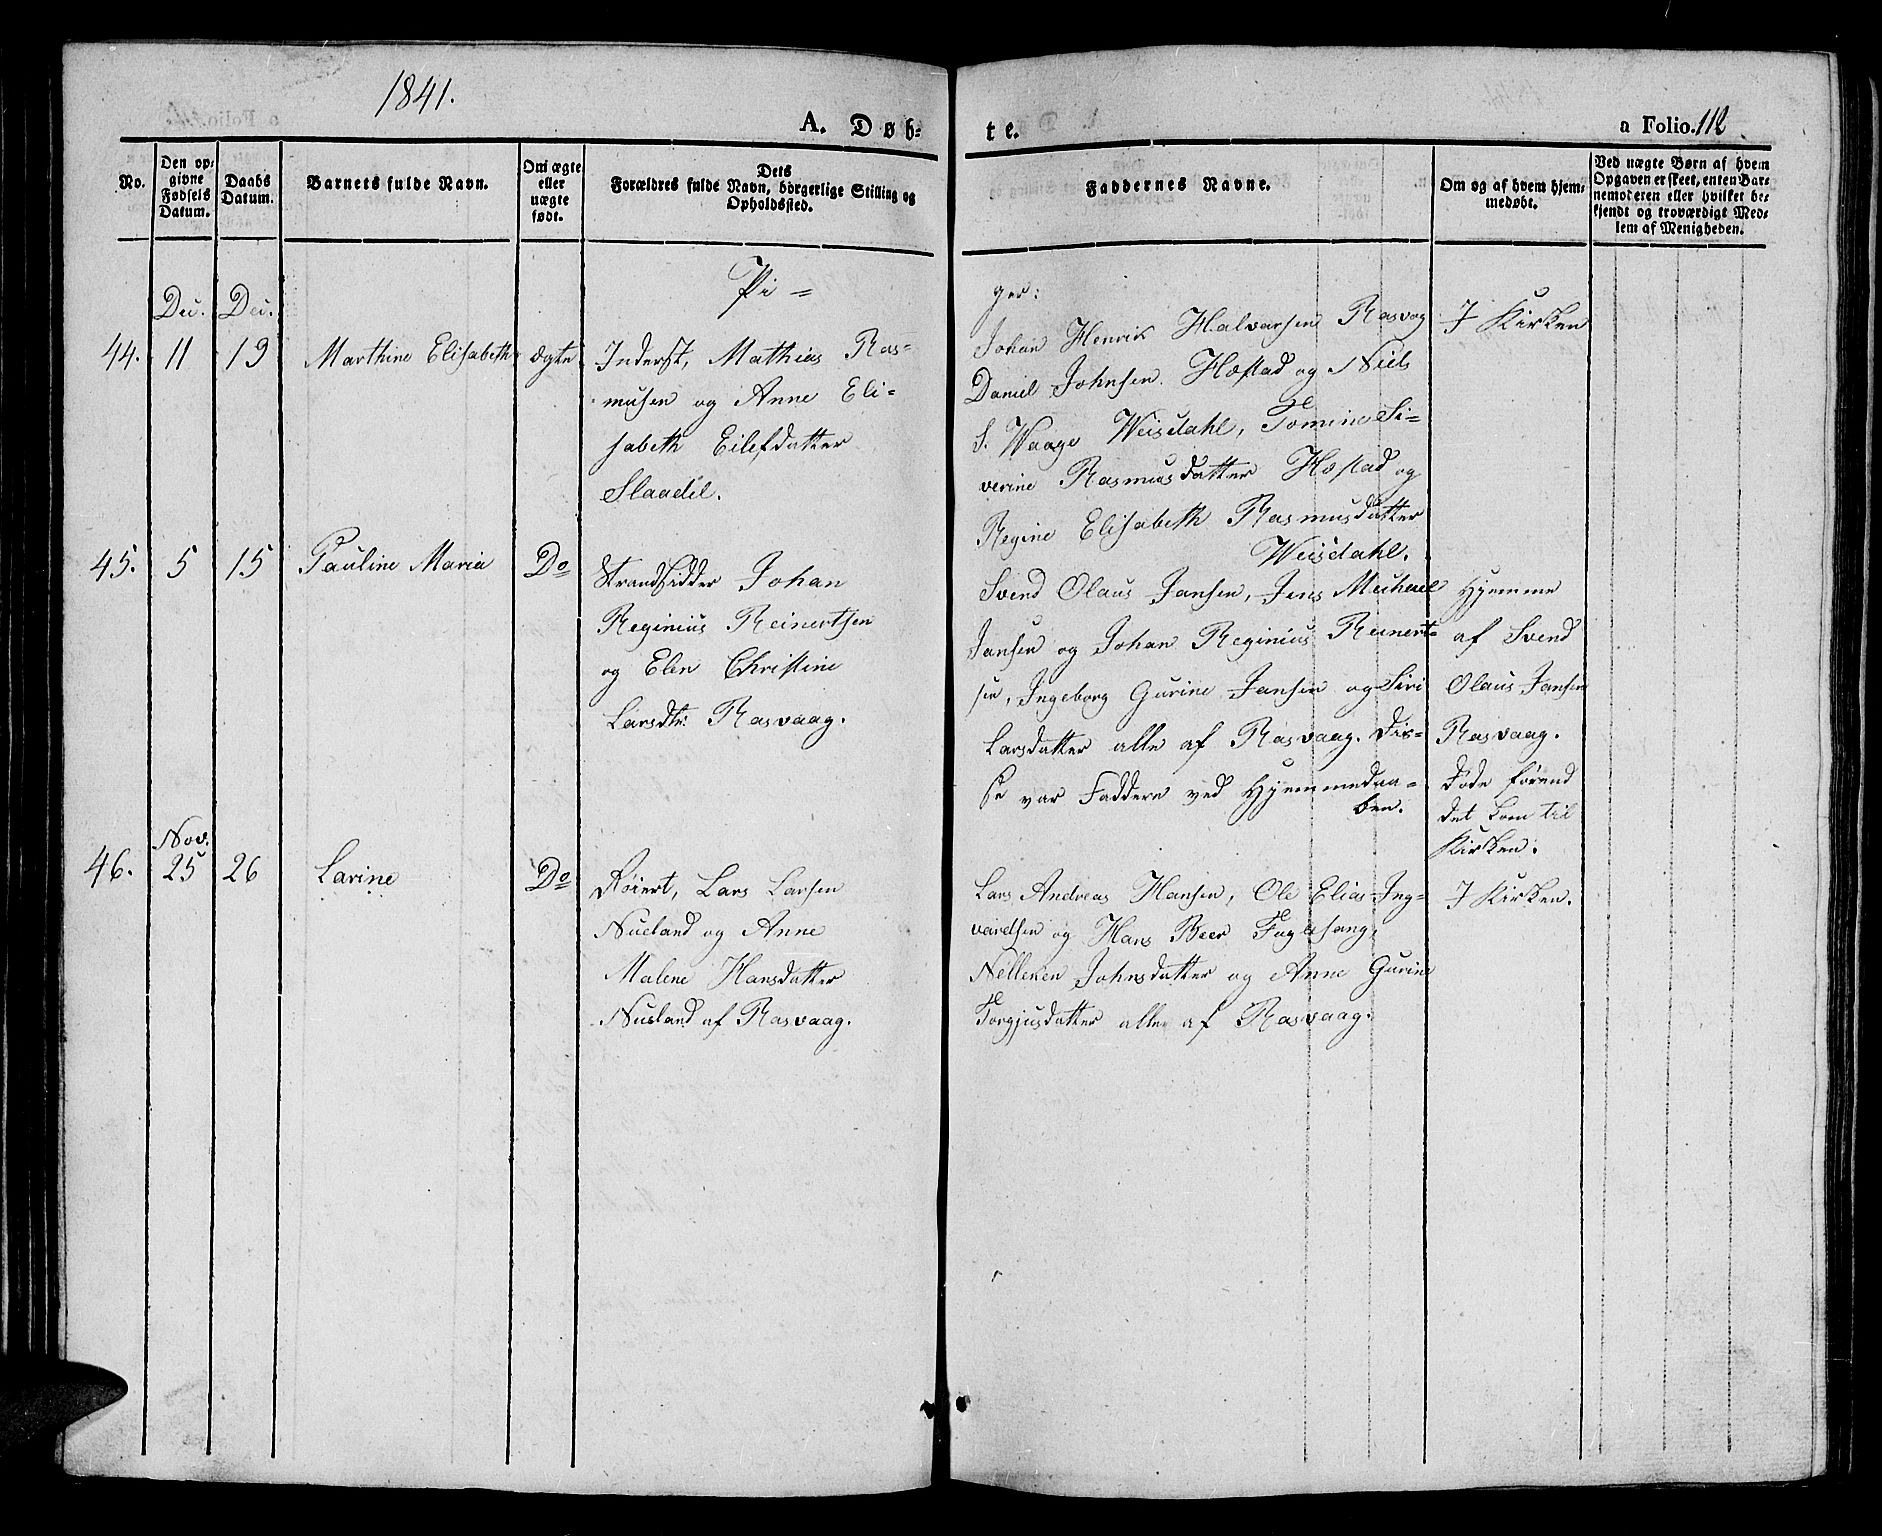 1841.
A. Døb-
te.
a Folio. 112.
No.
Den op-
givne
Fødsels
Datum.
Daabs
Datum.
Barnets fulde Navn.
Om ægte
eller
uægte
født.
Dets
Forældres fulde Navn, borgerlige Stilling og
Opholdssted.
Faddernes Navne.
Om og af hvem hjem-
medøbt.
Ved uægte Børn af hvem
Opgaven er skeet, enten Bar-
nemoderen eller hvilket be-
kjendt og troværdigt Med-
lem af Menigheden.
Pi =
ger:
Dec. Dec.
44. 11 19 Marthine Elisabeth ægte
Inderst, Mathias Ras-
musen og Anne Eli-
sabeth Eilefdatter
Slaadel.
Johan Henrik Halvarsen Rasvog
Daniel Johnsen Hæstad og Niels
S. Waage Weisdahl, Tomine Si=
verine Rasmusdatter Hæstad og
Regine Elisabeth Rasmusdatter
Weisdahl.
I Kirken
45. 5 15 Pauline Maria Do
Strandsidder Johan
Reginius Reinertsen
og Elen Christine
Larsdtr: Rasvaag.
Svend Olaus Jansen, Jens Michael
Jansen og Johan Reginius Reinert-
sen, Ingeborg Gurine Jansen og Siri
Larsdatter alle af Rasvaag. Dis-
se var Faddere ved Hjemmedaa-
ben.
Hjemme
af Svend
Olaus Jansen
Rasvaag.
Døde førend
det kom til
Kirken.
Nov.
46. 25 26 Larine Do
Røiert, Lars Larsen
Nueland og Anne
Malene Hansdatter
Nueland af Rasvaag.
Lars Andreas Hansen, Ole Elias Ing-
vardsen og Hans Beer Fuglesang,
Nelleken Johnsdatter og Anne Gurine
Torgjusdatter alle af Rasvaag.
I Kirken.